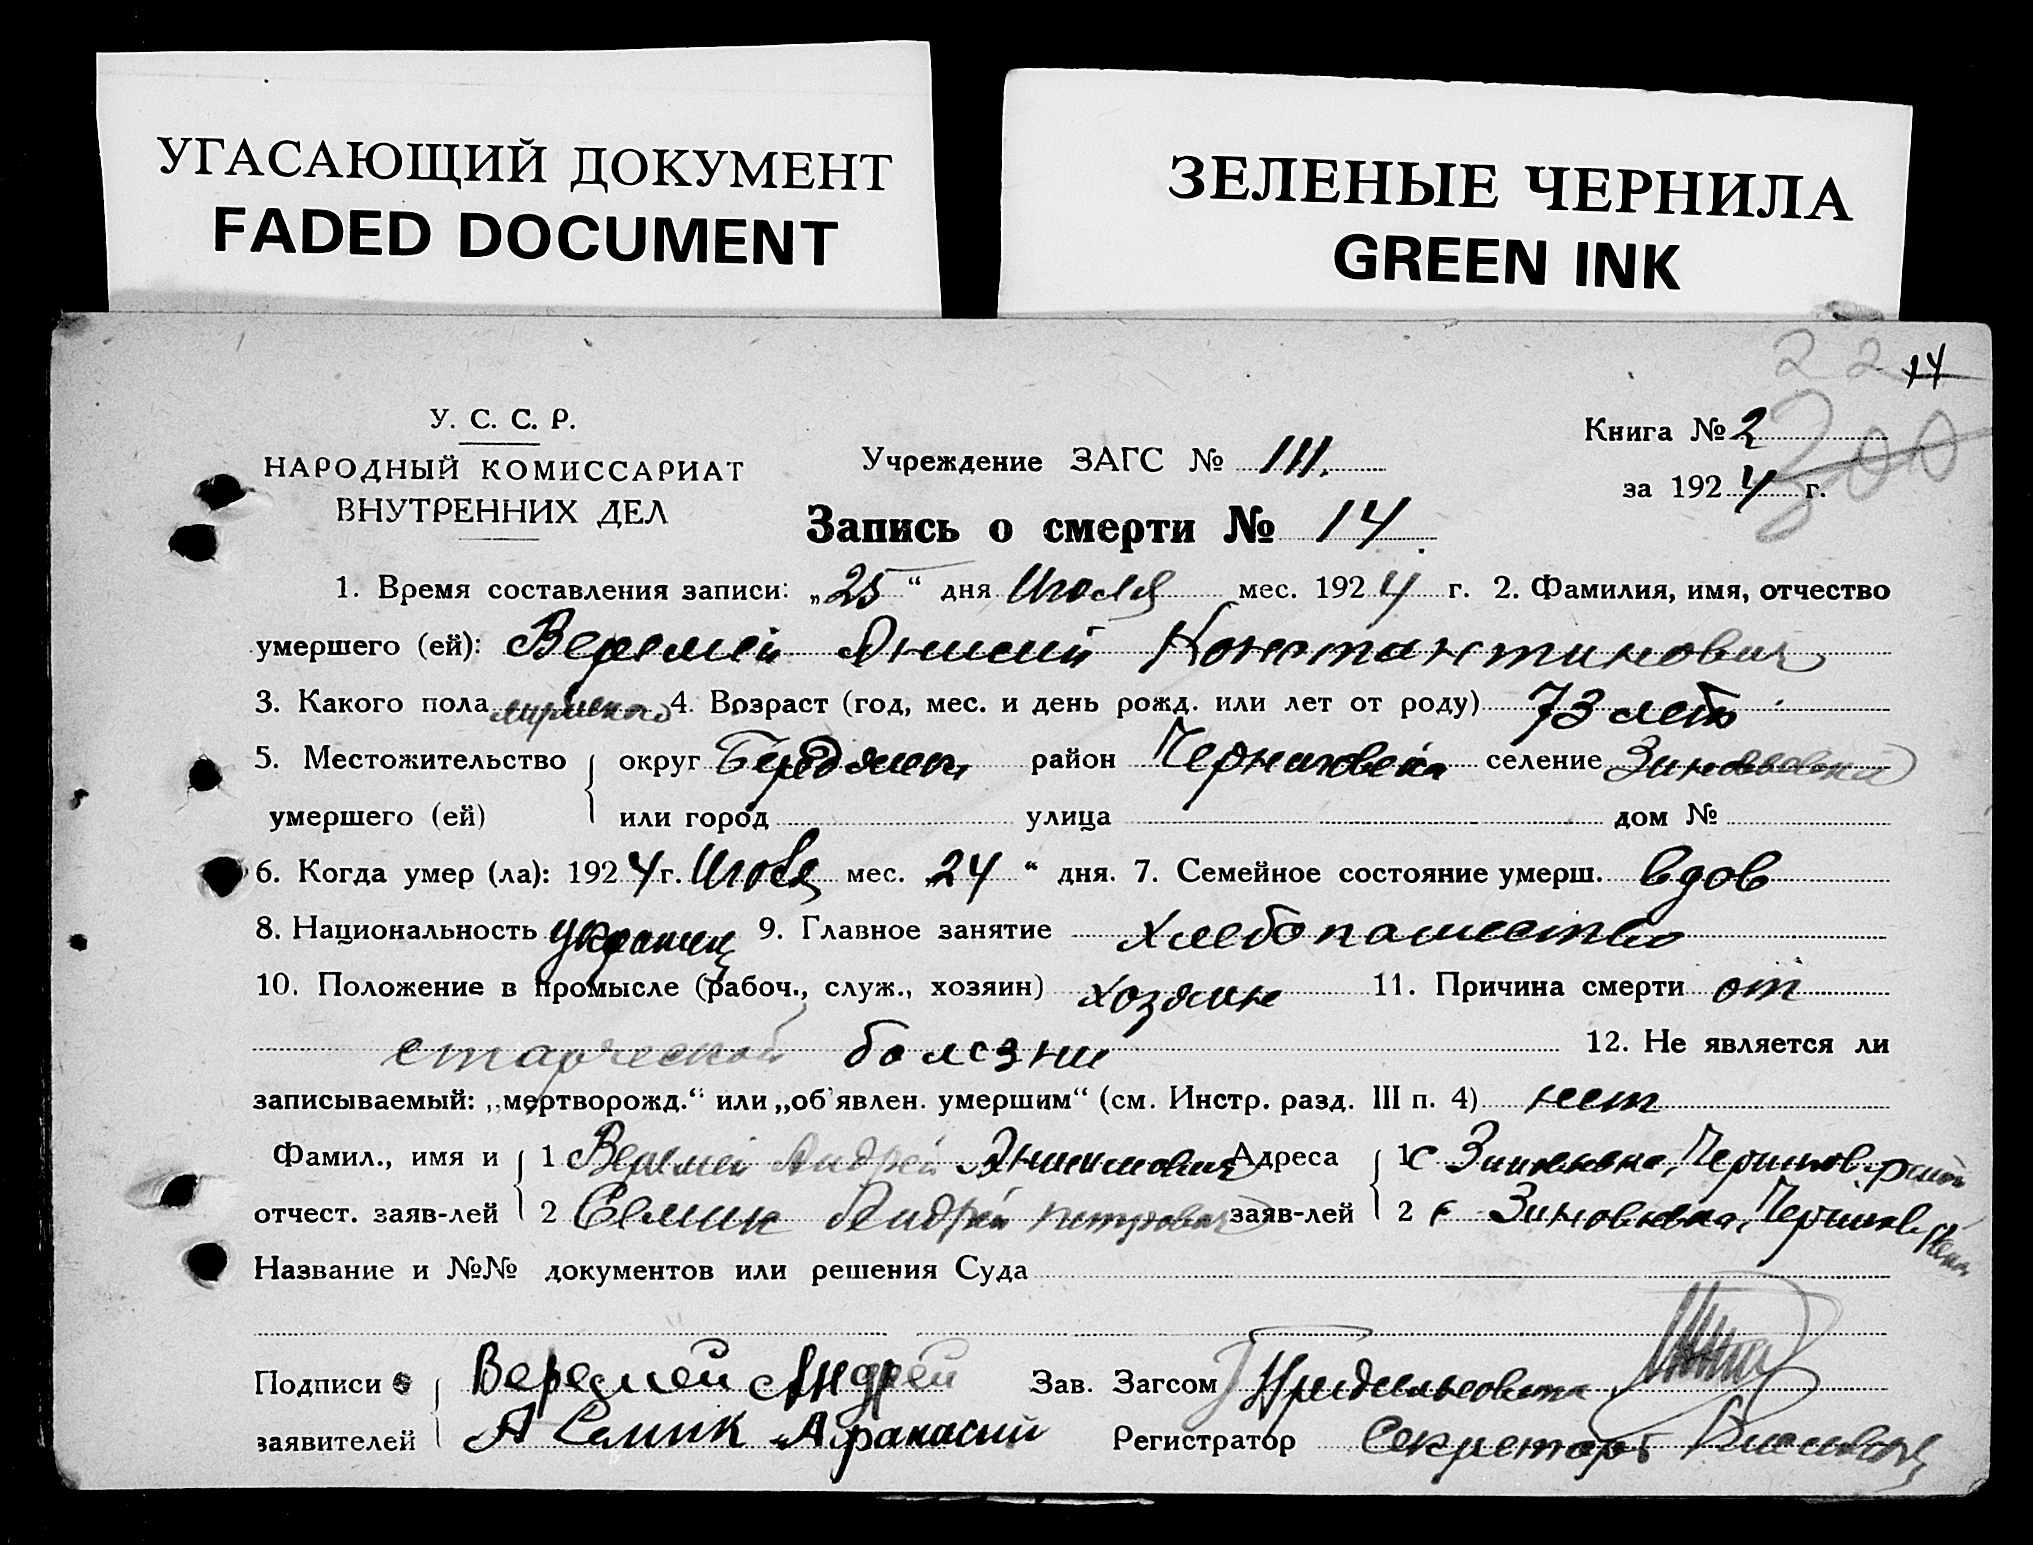 УГАСАЮЩИЙ ДОКУМЕНТ
FADED DOCUMENT
ЗЕЛЕНЫЕ ЧЕРНИЛА
GREEN INK
22 14
200
У. С. С. Р.
НАРОДНЫЙ КОМИССАРИАТ
ВНУТРЕННИХ ДЕЛ
Учреждение ЗАГС № 111.
Книга № 2
за 1924 г.
Запись о смерти № 14.
1. Время составления записи: „25“ дня Июля мес. 1924 г. 2. Фамилия, имя, отчество
умершего (ей): Веремей Константинович
3. Какого пола мужского 4. Возраст (год, мес. и день рожд. или лет от роду) 73 лет
5. Местожительство округ Бердянск район Черниговский селение Зиновьевка
умершего (ей) или город улица дом №
6. Когда умер (ла): 1924 г. Июля мес. „24“ дня. 7. Семейное состояние умерш. вдов
8. Национальность украинец 9. Главное занятие хлебопашество
10. Положение в промысле (рабоч., служ., хозяин) хозяин 11. Причина смерти от
старческой болезни 12. Не является ли
записываемый: „мертворожд.“ или „об'явлен. умершим“ (см. Инстр. разд. III п. 4) нет
Фамил., имя и 1 Веремей Андрей Адреса 1 с
отчест. заяв-лей 2 Семик Андрей Петрович заяв-лей 2 с
Название и №№ документов или решения Суда
Подписи Веремей Андрей Зав. Загсом
заявителей А Семик Афанасий Регистратор Секретарь